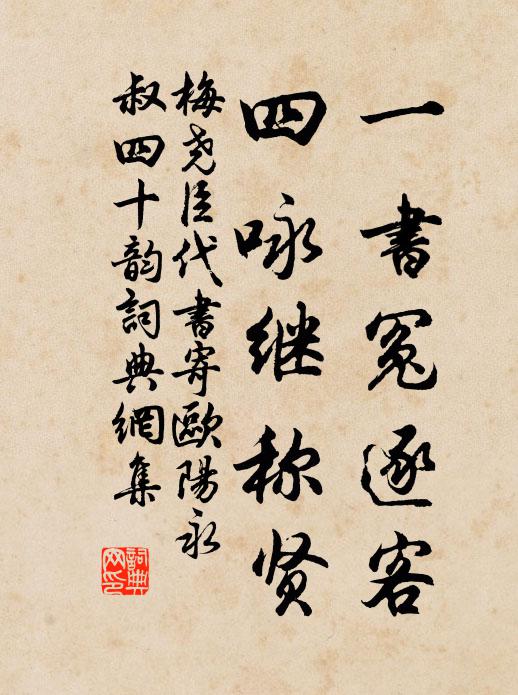 一書冤逐客
四咏继称贤
梅尧臣代書寄歐陽永
叔四十韵詞典網集
詞典网印